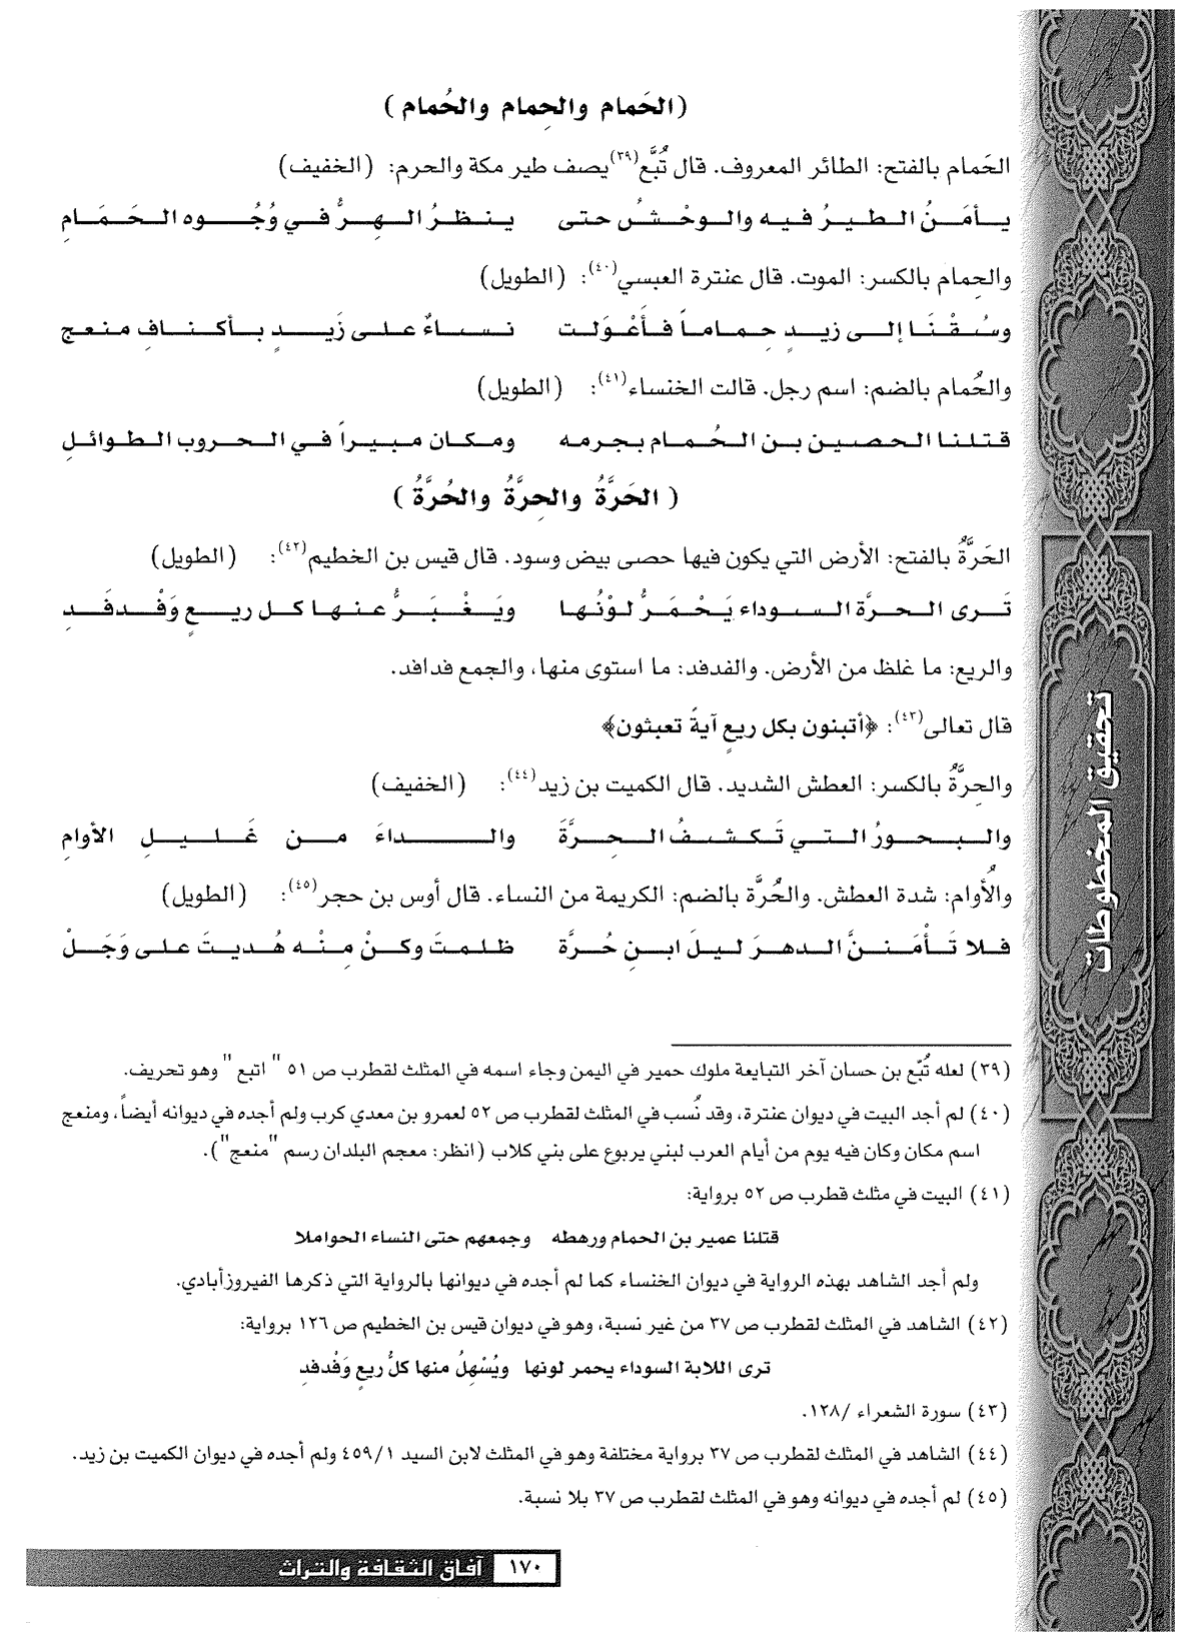 (الحَمام والحِمام والحُمام)
الحَمام بالفتح: الطائر المعروف. قال تُبَّع(٣٩) يصف طير مكة والحرم: (الخفيف)
يأمَنُ الطيرُ فيه والوحْشُ حتى ينظرُ الهِرُّ في وُجُوه الحَمَامِ
والحِمام بالكسر: الموت. قال عنترة العبسي(٤٠): (الطويل)
وسُقْنَا إلى زيدٍ حِماماً فأَعْوَلت نساءٌ على زَيدٍ بأكنافِ منعج
والحُمام بالضم: اسم رجل. قالت الخنساء(٤١): (الطويل)
قتلنا الحصين بن الحُمام بجرمه ومكان مبيراً في الحروب الطوائلِ
(الحَرَّةُ والحِرَّةُ والحُرَّةُ)
الحَرَّةُ بالفتح: الأرض التي يكون فيها حصى بيض وسود. قال قيس بن الخطيم(٤٢): (الطويل)
تَرى الحرَّة السوداء يَحْمَرُّ لوْنُها ويَغْبَرُّ عنها كل ريعٍ وَفْدفَدِ
والريع: ما غلظ من الأرض. والفدفد: ما استوى منها، والجمع فدافد.
قال تعالى(٤٣): ﴿أتبنون بكل ريعٍ آيةً تعبثون﴾
والحِرَّةُ بالكسر: العطش الشديد. قال الكميت بن زيد(٤٤): (الخفيف)
والبحورُ التي تَكشفُ الحِرَّةَ والداءَ من غَليلِ الأوامِ
والأُوام: شدة العطش. والحُرَّة بالضم: الكريمة من النساء. قال أوس بن حجر(٤٥): (الطويل)
فلا تَأْمَننَّ الدهرَ ليلَ ابنِ حُرَّة ظلمتَ وكنْ مِنْه هُديتَ على وَجَلْ
(٣٩) لعله تُبّع بن حسان آخر التبايعة ملوك حمير في اليمن وجاء اسمه في المثلث لقطرب ص ٥١ "اتبع" وهو تحريف.
(٤٠) لم أجد البيت في ديوان عنترة، وقد نُسب في المثلث لقطرب ص ٥٢ لعمرو بن معدي كرب ولم أجده في ديوانه أيضاً، ومنعج
اسم مكان وكان فيه يوم من أيام العرب لبني يربوع على بني كلاب (انظر: معجم البلدان رسم "منعج").
(٤١) البيت في مثلث قطرب ص ٥٢ برواية:
قتلنا عمير بن الحمام ورهطه وجمعهم حتى النساء الحواملا
ولم أجد الشاهد بهذه الرواية في ديوان الخنساء كما لم أجده في ديوانها بالرواية التي ذكرها الفيروزأبادي.
(٤٢) الشاهد في المثلث لقطرب ص ٣٧ من غير نسبة، وهو في ديوان قيس بن الخطيم ص ١٢٦ برواية:
ترى اللابة السوداء يحمر لونها ويُسْهِلُ منها كلُّ ريعٍ وَفْدفدِ
(٤٣) سورة الشعراء /١٢٨.
(٤٤) الشاهد في المثلث لقطرب ص ٣٧ برواية مختلفة وهو في المثلث لابن السيد ٤٥٩/١ ولم أجده في ديوان الكميت بن زيد.
(٤٥) لم أجده في ديوانه وهو في المثلث لقطرب ص ٣٧ بلا نسبة.
١٧٠ آفاق الثقافة والتراث
تحقيق المخطوطات